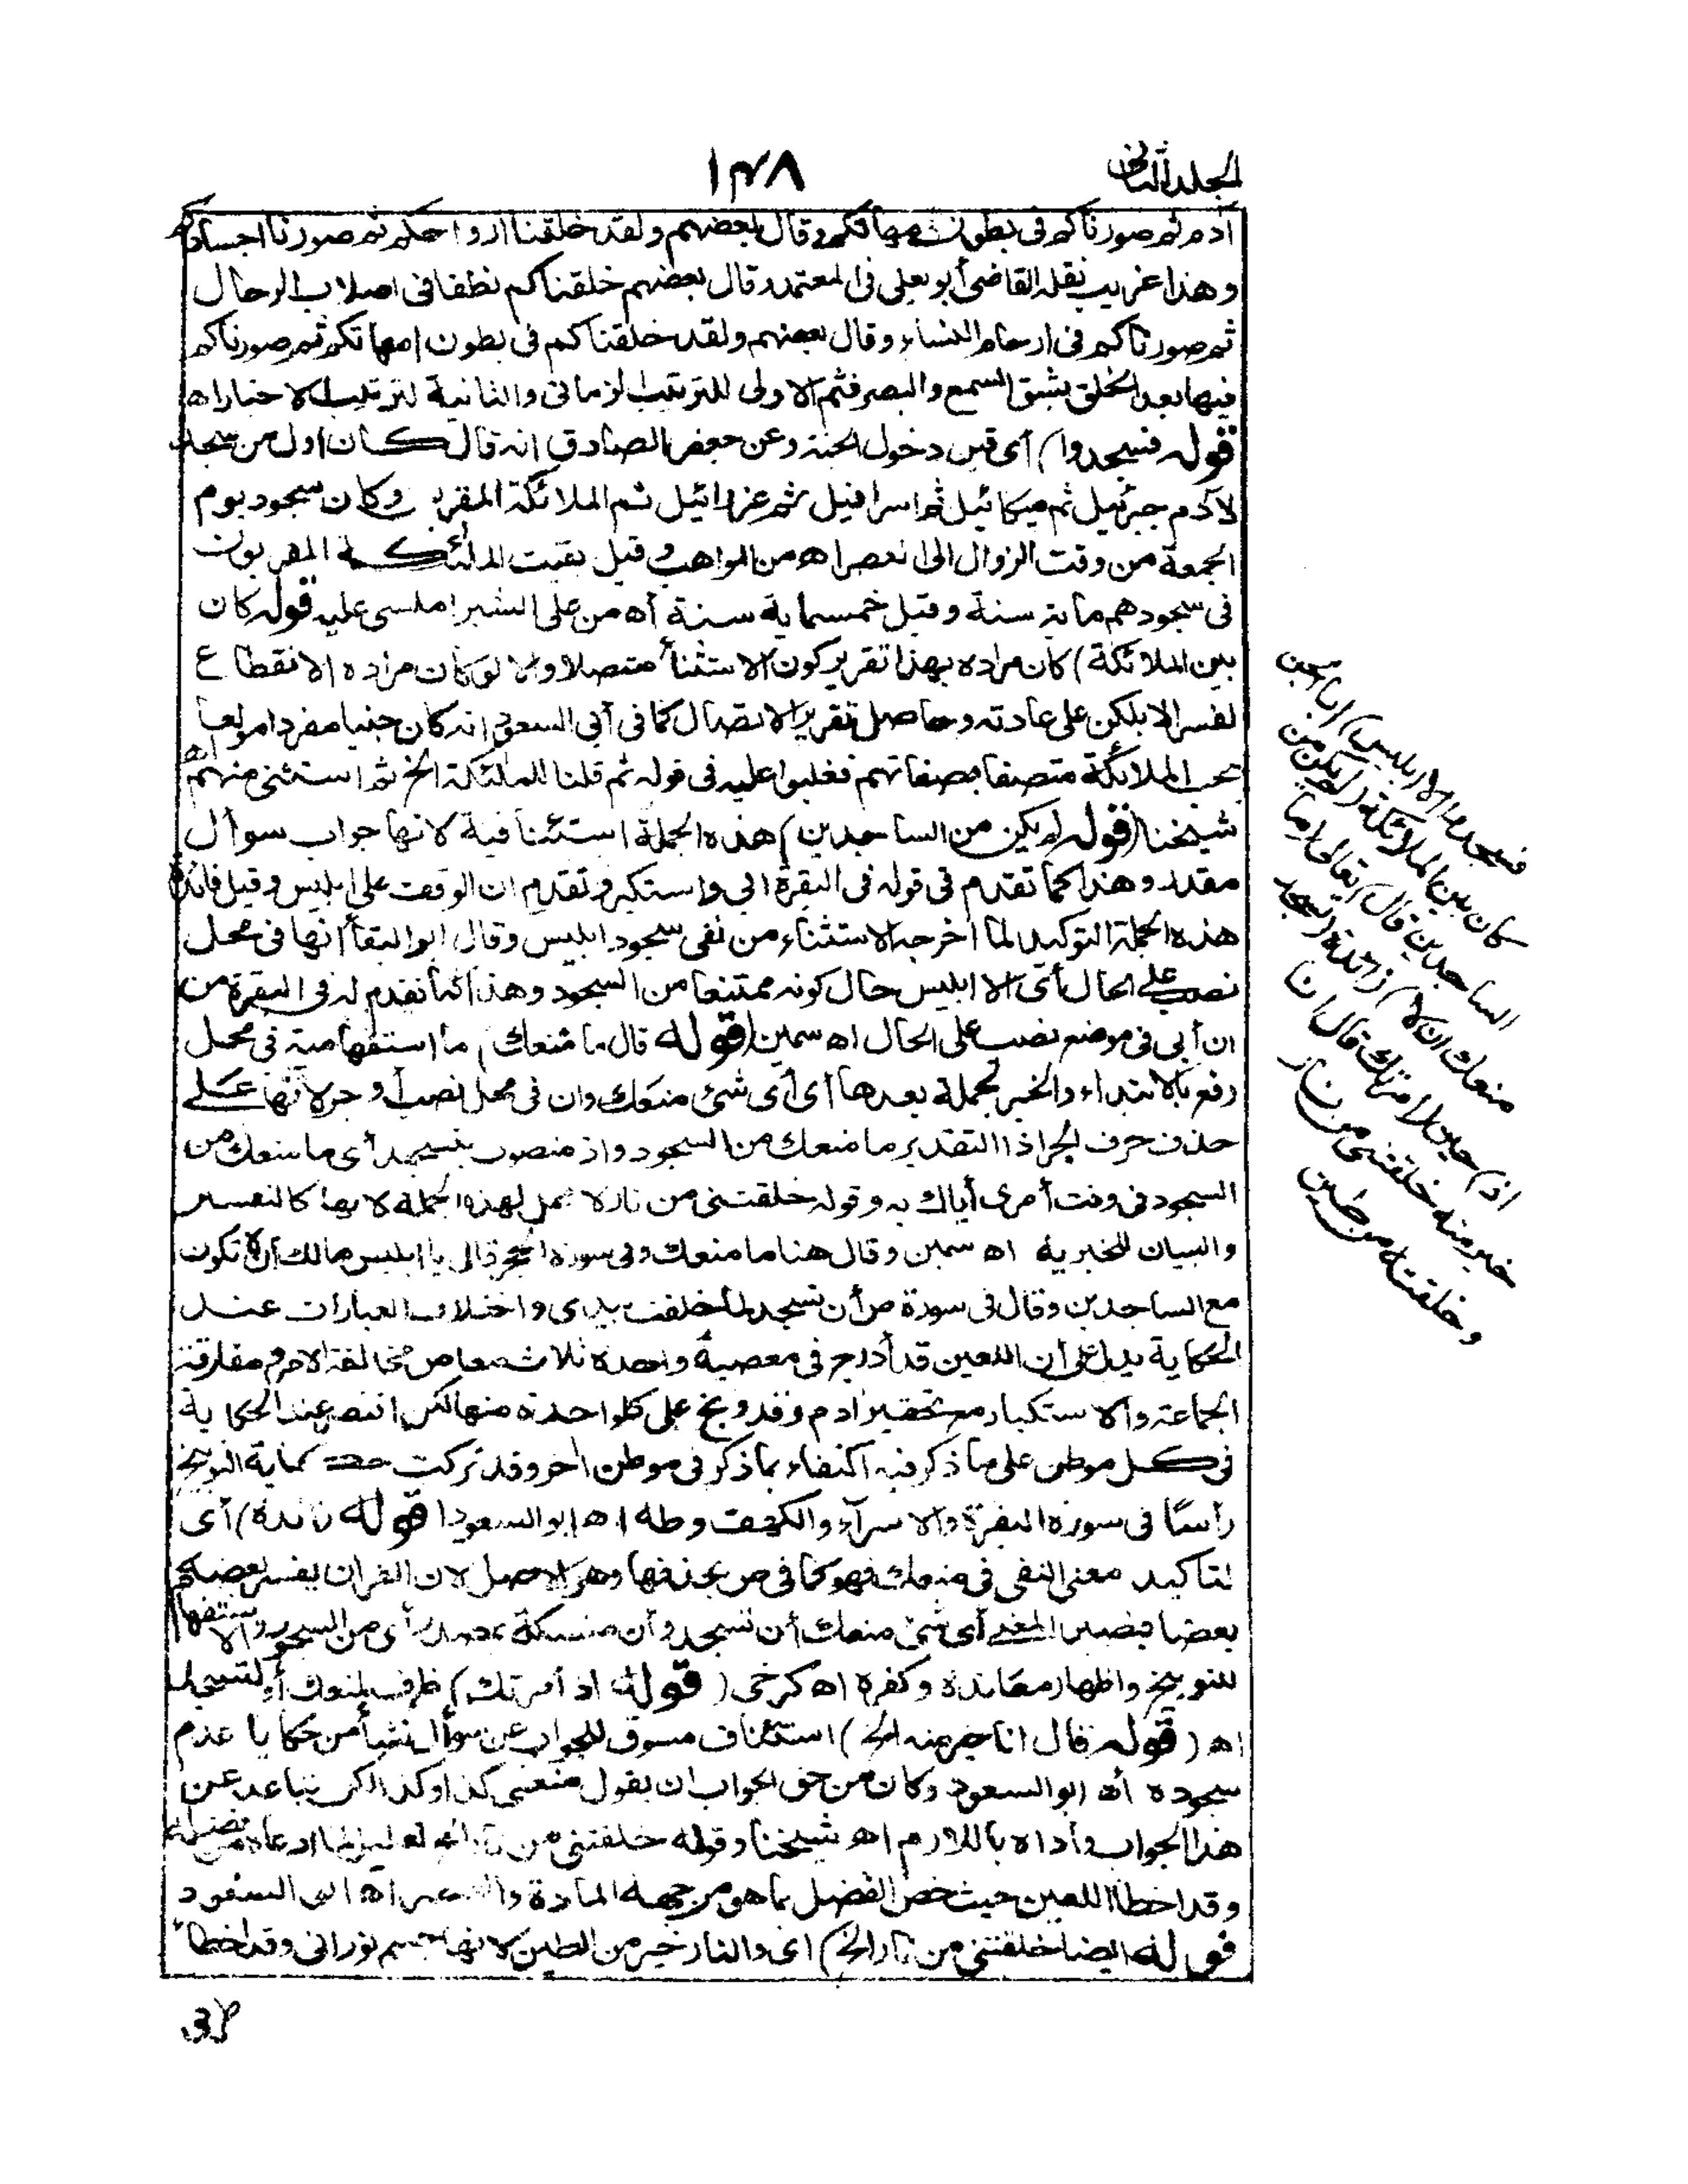 المجلد الثاني
١٣٨
آدم ثم صورناكم في بطون أمهاتكم وقال بعضهم ولقد خلقنا ارواحكم ثم صورنا اجسادكم
وهذا غريب نقله القاضي أبو يعلى في المعتمد وقال بعضهم خلقناكم نطفا في اصلاب الرجال
ثم صورناكم في ارحام النساء وقال بعضهم ولقد خلقناكم في بطون امهاتكم ثم صورناكم
فيها بعد الخلق بشق السمع والبصر فثم الاولى للترتيب الزماني والثانية لترتيب الاخبار اه
قوله فسجدوا) أي قبل دخول الجنة وعن جعفر الصادق انه قال كان اول من سجد
لآدم جبرئيل ثم ميكائيل ثم اسرافيل ثم عزرائيل ثم الملائكة المقربون وكان سجود يوم
الجمعة من وقت الزوال الى العصر اه من المواهب وقيل بقيت الملائكة المقربون
في سجودهم مائة سنة وقيل خمسماية سنة أه من على الشبراملسي عليه قوله كان
بين الملائكة) كان مراده بهذا تقرير كون الاستثنأ متصلا والا لو كان مراده الانقطاع
لفسر الا بلكن على عادته وحاصل تقرير الاتصال كما في أبي السعود انه كان جنيا مفردا مولعا
الملائكة متصفا بصفاتهم فغلبوا عليه في قوله ثم قلنا للملئكة الخ ثم استثنى منهم اه
شيخنا (قوله لم يكن من الساجدين) هذه الجملة استئنافية لانها جواب سوأل
مقدر وهذا كما تقدم في قوله في البقرة ابى واستكبر وتقدم ان الوقف على ابليس وقيل فائدة
هذه الجملة التوكيد لما اخرجه الاستثناء من نفي سجود ابليس وقال ابو البقأ انها في محل
نصب على الحال أي الا ابليس حال كونه ممتنعا من السجود وهذا كما تقدم له في البقرة من
ان أبى في موضع نصب على الحال اه سمين (قوله قال ما منعك) ما استفهامية في محل
رفع بالابتداء والخبر الجملة بعدها أي أي شئ منعك وان في محل نصب أو جر لانها على
حذف حرف الجر اذ التقدير ما منعك من السجود واذ منصوب بتسجد أي ما منعك من
السجود في وقت أمري أياك به وقوله خلقتني من نار لا محل لهذه الجملة لانها كالتفسير
والبيان للخبرية اه سمين وقال هنا ما منعك وفي سورة الحجر قال يا ابليس مالك أن لا تكون
مع الساجدين وقال في سورة ص أن تسجد لما خلقت بيدى واختلاف العبارات عند
الحكاية يدل على أن اللعين قد أدرج في معصية واحدة ثلاث معاص مخالفة الامر ومفارقة
الجماعة والاستكبار مع تحقير ادم وقد وبخ على كل واحدة منها لكن اقتصر عند الحكاية
في كل موطن على ما ذكر فيه اكتفاء بما ذكر في موطن اخر وقد تركت حكاية التوبيخ
رأسًا في سورة البقرة والاسرآء والكهف وطه اه ابو السعود (قوله زائدة) أي
لتاكيد معنى النفي في منعك فهو كما في ص بحذفها وهو الاصل لان القران يفسر بعضه
بعضا المعنى أي شئ منعك أن تسجد وأن منسبكة بمصدر أي من السجود والاستفهام
للتوبيخ واظهار معاندة وكفره اه كرخى (قوله اذ أمرتك) ظرف لمنعك أو لتسجد
اه (قوله قال انا خير منه الخ) استئناف مسوق للجواب عن سوأل نشأ من حكاية عدم
سجوده أه ابو السعود وكان من حق الجواب ان يقول منعنى كذا وكذا لكن تباعد عن
هذا الجواب وأداه باللازم اه شيخنا وقوله خلقتني من نار الخ تعليل لما ادعاه من فضله
وقد اخطأ اللعين حيث خص الفضل بما هو من جهة المادة والعنصر اه ابى السعود
قوله ايضا خلقتني من نار الخ) اى والنار خير من الطين لانها جسم نوراني وقد اخطأ
فسجدوا الا ابليس) ابا الجن
كان بين الملائكة (لم يكن من
الساجدين قال) تعالى (ما
منعك ان لا) زائدة (تسجد
اذ) حين (امرتك قال انا
خير منه خلقتني من نار
وخلقته من طين